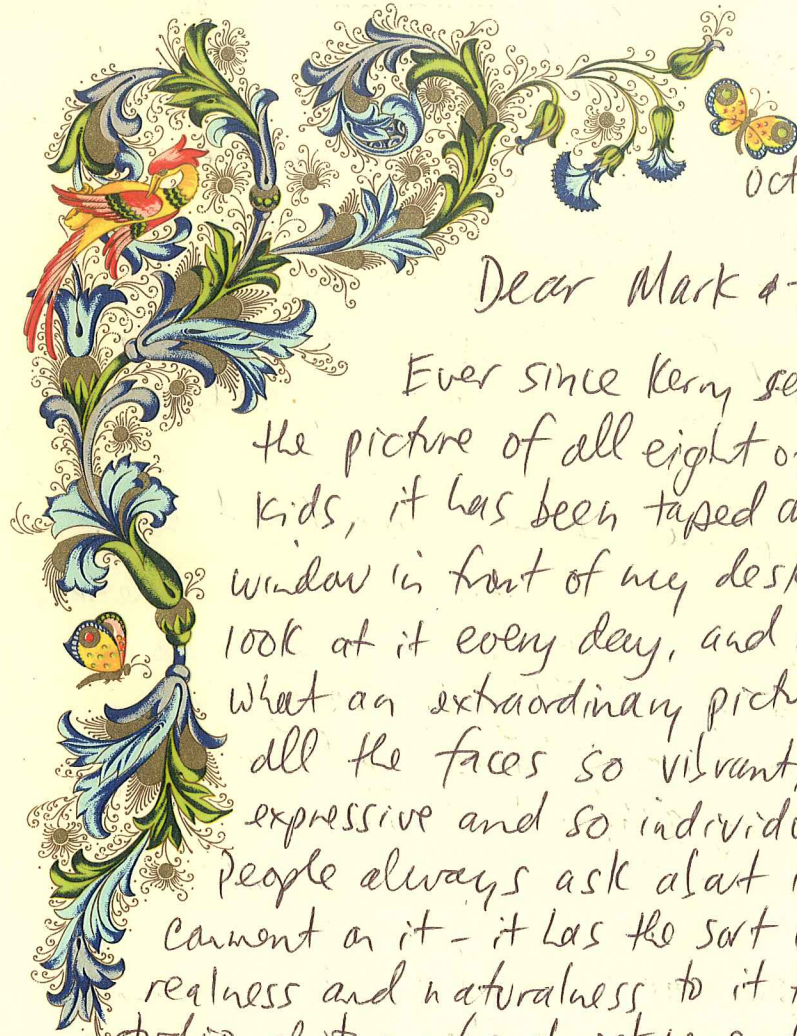 Oct
Dear Mark &
Ever since Kerry se
the picture of all eight o
kids, it has been taped a
window in front of my desk
look at it every day, and
what an extraordinary pictu
all the faces so vibrant,
expressive and so individu
People always ask about i
comment on it - it has the sort
realness and naturalness to it